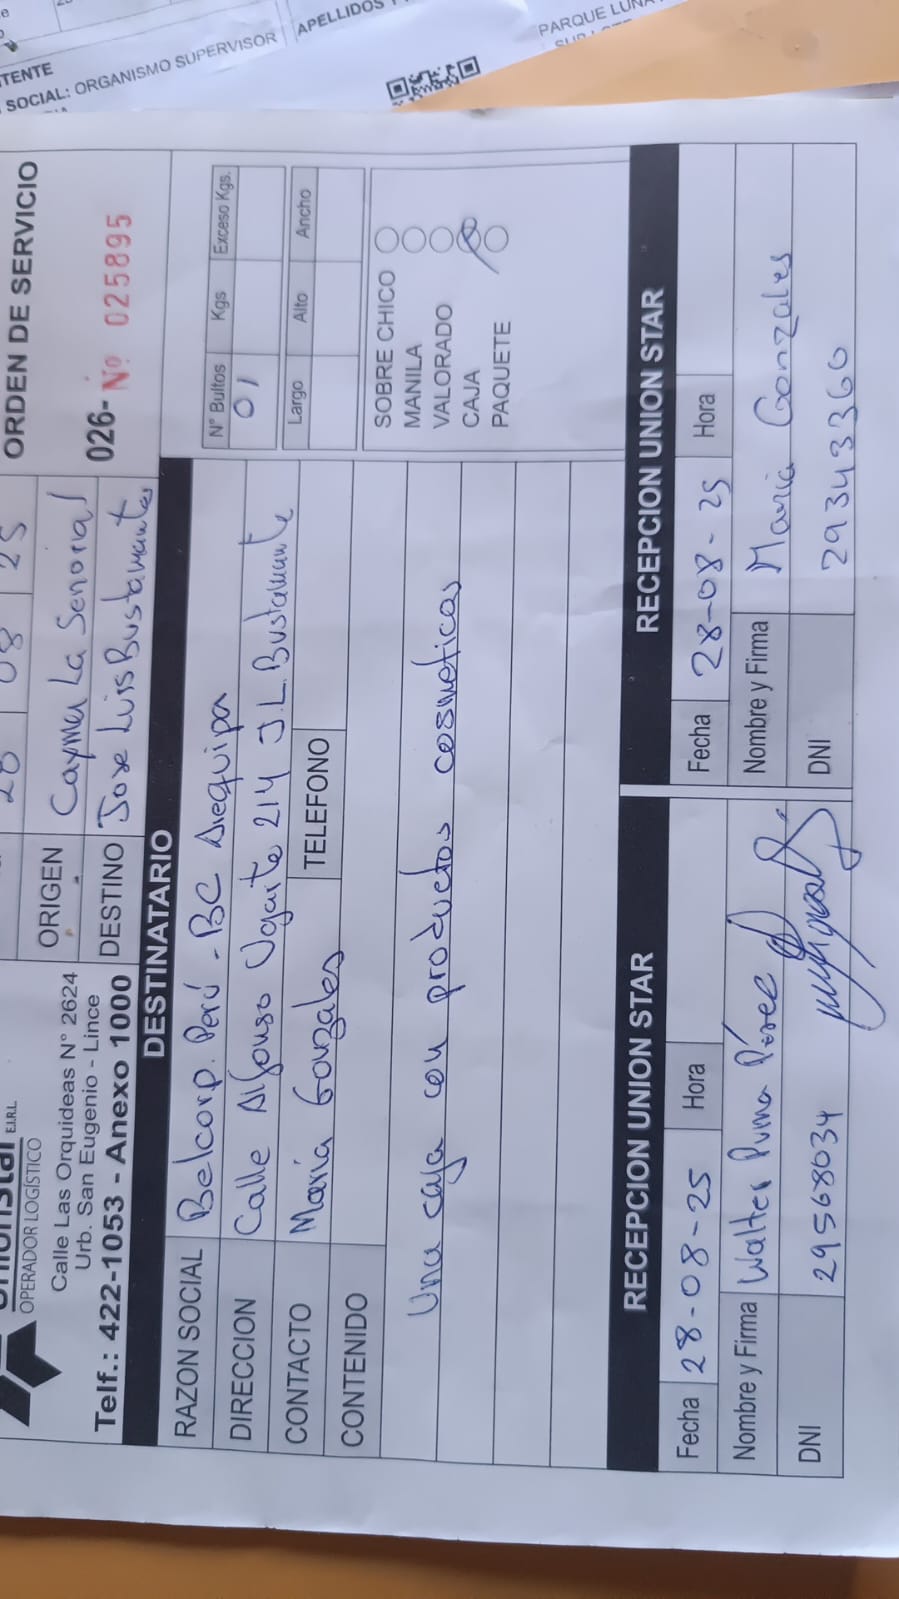 TENTE
SOCIAL: ORGANISMO SUPERVISOR
APELLIDOS
PARQUE LUNA
OPERADOR LOGÍSTICO
E.I.R.L.
Calle Las Orquideas N° 2624
Urb. San Eugenio - Lince
Telf.: 422-1053 - Anexo 1000
28 08 25
ORIGEN Cayma La Señorial
DESTINO Jose Luis Bustamante
ORDEN DE SERVICIO
026- Nº 025895
DESTINATARIO
RAZON SOCIAL Belcorp. Perú - BC Arequipa
DIRECCION Calle Alfonso Ugarte 214 J.L. Bustamante
CONTACTO Maria Gonzales TELEFONO
CONTENIDO
Una caja con productos cosmeticos
N° Bultos Kgs Exceso Kgs.
01
Largo Alto Ancho
SOBRE CHICO
MANILA
VALORADO
CAJA
PAQUETE
RECEPCION UNION STAR
Fecha 28-08-25 Hora
Nombre y Firma Walter Puma Pérez
DNI 29568034
RECEPCION UNION STAR
Fecha 28-08-25 Hora
Nombre y Firma Maria Gonzales
DNI 29343360